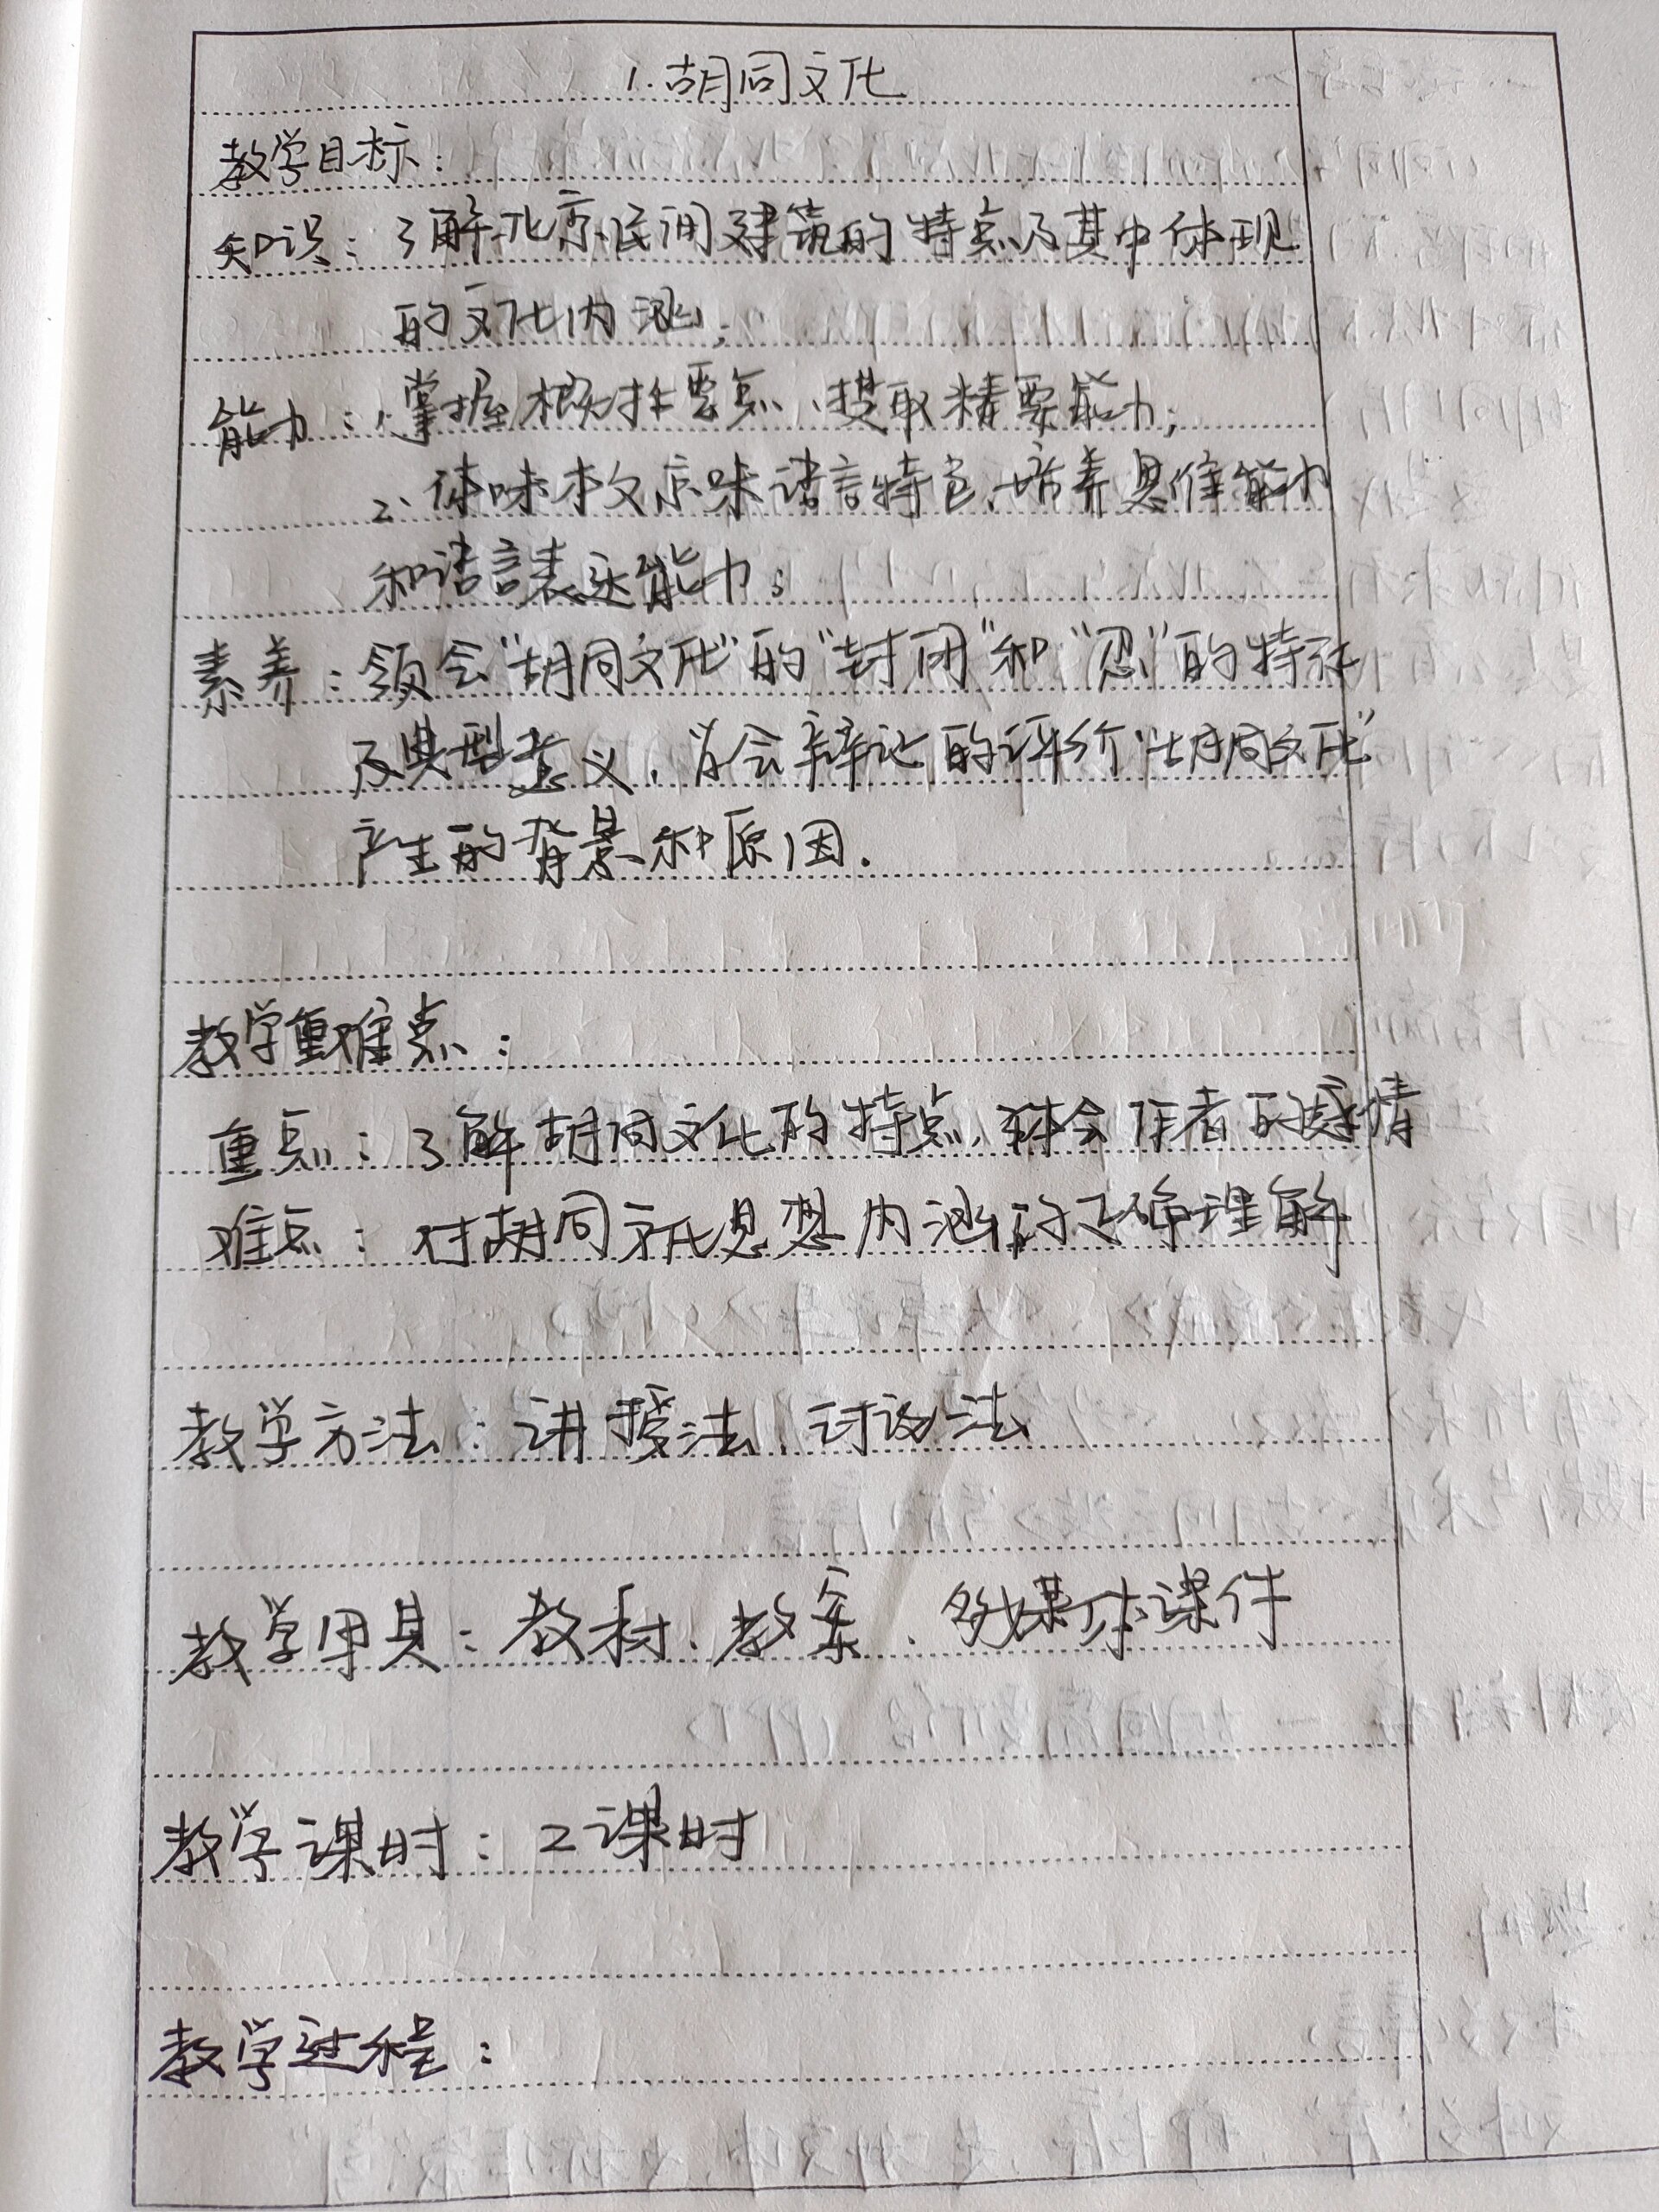 1.胡同文化
教学目标:
知识:了解北京民间建筑的特点及其中体现
的文化内涵;
能力:1.掌握概括要点、提取精要能力;
2、体味本文京味语言特色,培养思维能力
和语言表达能力;
素养:领会“胡同文化”的“封闭”和“忍”的特征
及典型意义,学会辩论的评价“胡同文化”
产生的背景和原因.
教学重难点:
重点:了解胡同文化的特点,体会作者的感情
难点:对胡同文化思想内涵的正确理解
教学方法:讲授法、讨论法
教学用具:教材、教案、多媒体课件
教学课时:2课时
教学过程: